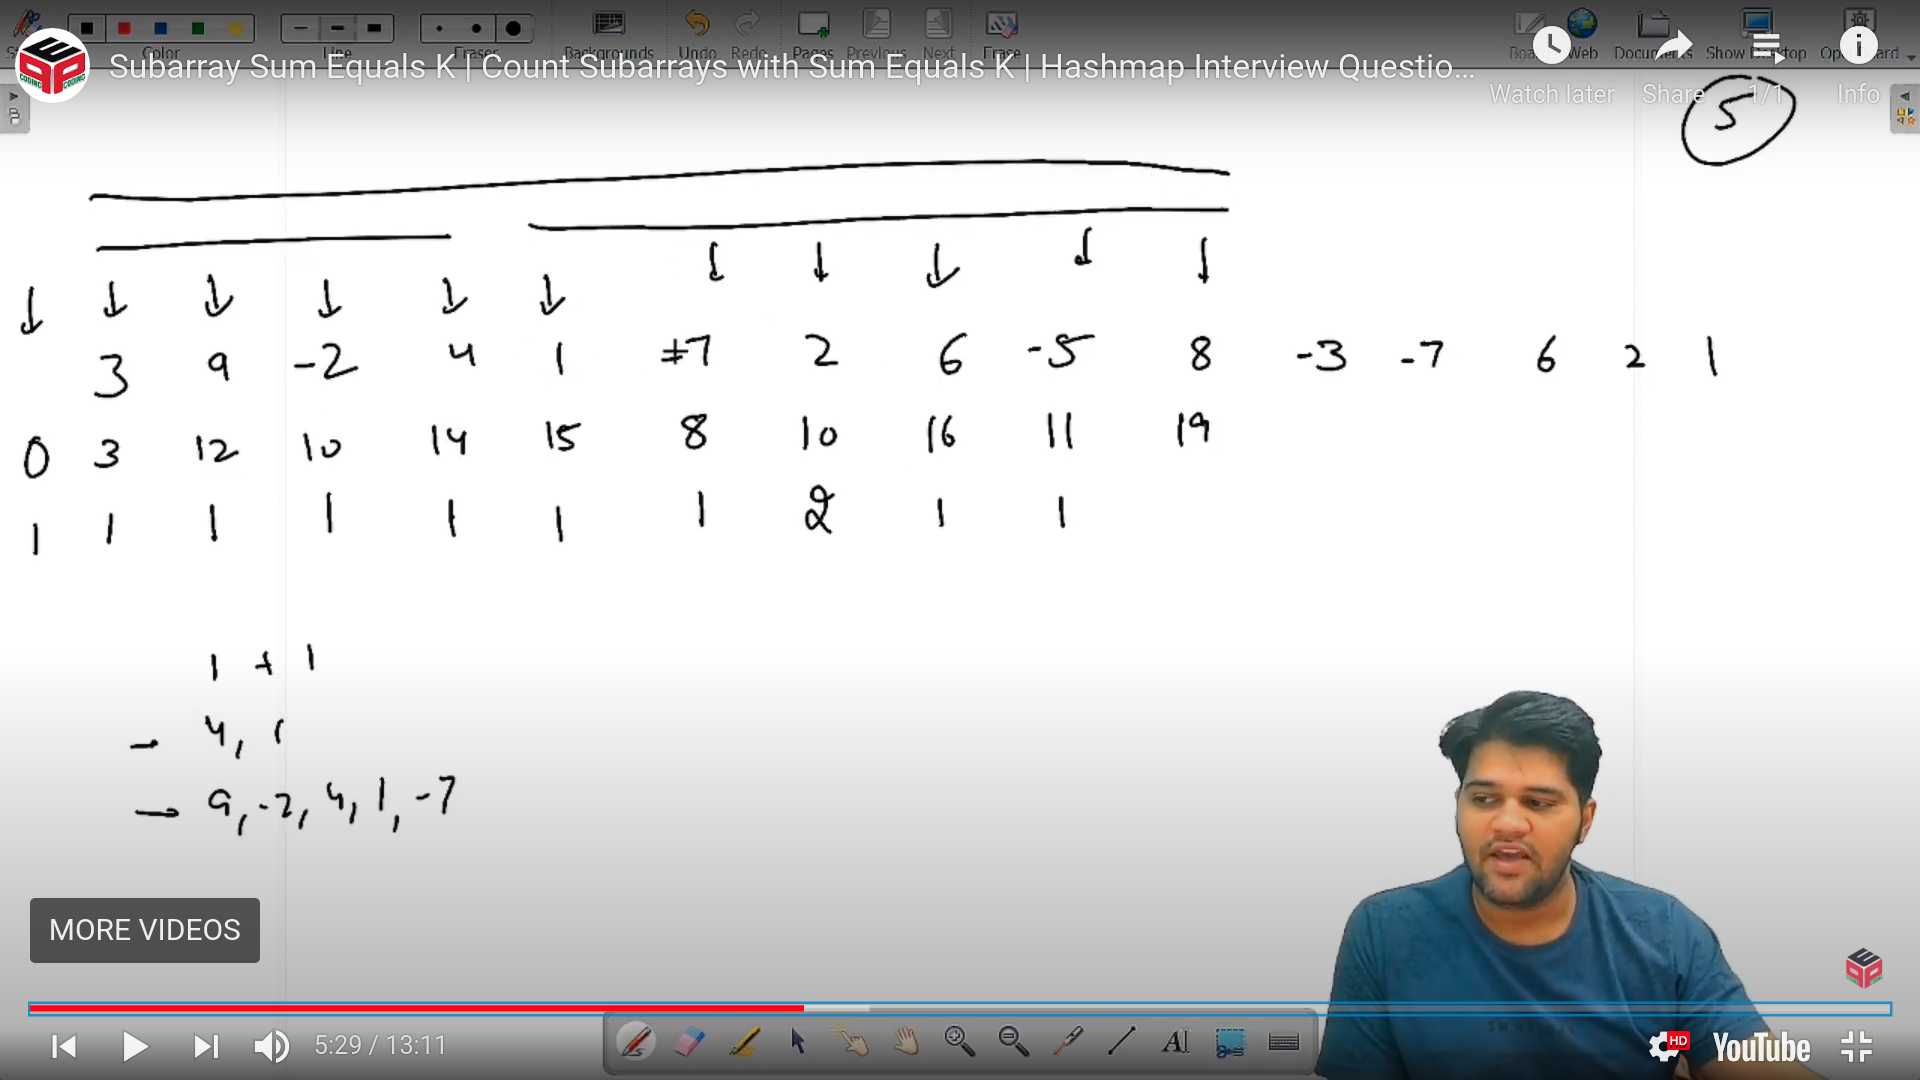 Color Line Eraser Backgrounds Undo Redo Pages Previous Next Erase Web Documents Show Desktop
Subarray Sum Equals K | Count Subarrays with Sum Equals K | Hashmap Interview Questio...
Watch later Share 1/1 Info
5
3 9 -2 4 1 -7 2 6 -5 8 -3 -7 6 2 1
0 3 12 10 14 15 8 10 16 11 19
1 1 1 1 1 1 1 2 1 1
1 + 1
4, 1
9, -2, 4, 1, -7
MORE VIDEOS
5:29 / 13:11
HD YouTube